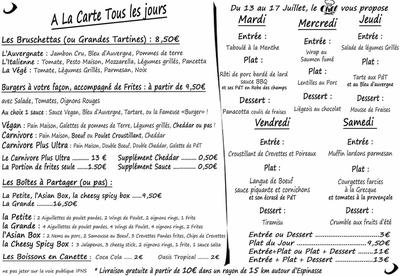 A La Carte Tous les jours
Les Bruschettas (ou Grandes Tartines) : 8,50€
L'Auvergnate : Jambon Cru, Bleu d'Auvergne, Pommes de terre
L'Italienne : Tomate, Pesto Maison, Mozzarella, Légumes grillés, Pancetta
La Végé : Tomate, Légumes Grillés, Parmesan, Noix
Burgers à votre façon, accompagné de Frites : à partir de 9,50€
avec Salade, Tomates, Oignons Rouges
Au choix 1 sauce : Sauce Vegan, Bleu d'Auvergne, Tartare, ou la Fameuse «Burger» !
Végan : Pain Maison, Galettes de pommes de Terre, Légumes grillés, Cheddar ou pas !
Carnivore : Pain Maison, Bœuf ou Poulet Croustillant, Cheddar
Carnivore Plus Ultra : Pain Maison, Double Bœuf, Double Cheddar, Galette de PdT
Le Carnivore Plus Ultra ....... 13 € Supplément Cheddar .......... 0,50€
La Portion de frites seule .....1.50€ Supplément Sauce .......... 0,50€
Les Boîtes à Partager (ou pas) :
La petite, l'Asian Box, la cheesy spicy box .....9,50€
La Grande .......16,50€
la Petite : 2 Aiguillettes de poulet panées, 2 Wings de Poulet, 2 oignons rings, 1 frite
la Grande : 4 Aiguillettes de poulet panées, 4 Wings de Poulet, 4 oignons rings, 2 frites
l'Asian Box : 2 Nems au Poulet, 2 Samossas au bœuf, 2 Beignets de crevettes, 1 frite
la Cheesy Spicy Box : 3 Jalapenos, 3 cheesy stick, 2 oignons rings, 1 frite, 1 sauce salsa
Les Boissons en Canette : Coca Cola .... 2€ Oasis Tropical .... 2€
ne pas jeter sur la voie publique IPNS
Du 13 au 17 Juillet, le Chef vous propose
Mardi
Entrée :
Taboulé à la Menthe
Plat :
Rôti de porc bardé de lard
sauce BBQ
et ses PdT en Robe des champs
Dessert :
Panacotta coulis de fraises
Mercredi
Entrée :
Wrap au
Saumon fumé
Plat :
Lentilles au Porc
Dessert :
Liégeois au chocolat
Jeudi
Entrée :
Salade de légumes Grillés
Plat :
Tarte aux PdT
et au Bleu d'Auvergne
Dessert :
Mousse de Fraises
Vendredi
Entrée :
Croustillant de Crevettes et Poireaux
Plat :
Langue de Boeuf
sauce piquante et cornichons
et son écrasé de PdT
Dessert :
Tiramisu
Samedi
Entrée :
Muffin lardons parmesan
Plat :
Courgettes farcies
à la Grecque
et pommes de terre
à la tomate
Dessert :
Crumble aux fruits d'été
Entrée ou Dessert ...............3€
Plat du Jour .....................9,50€
Entrée+Plat ou Plat + Dessert ..... 11€
Entrée + Plat + Dessert ............13€
* Livraison gratuite à partir de 10€ dans un rayon de 15 km autour d'Espinasse